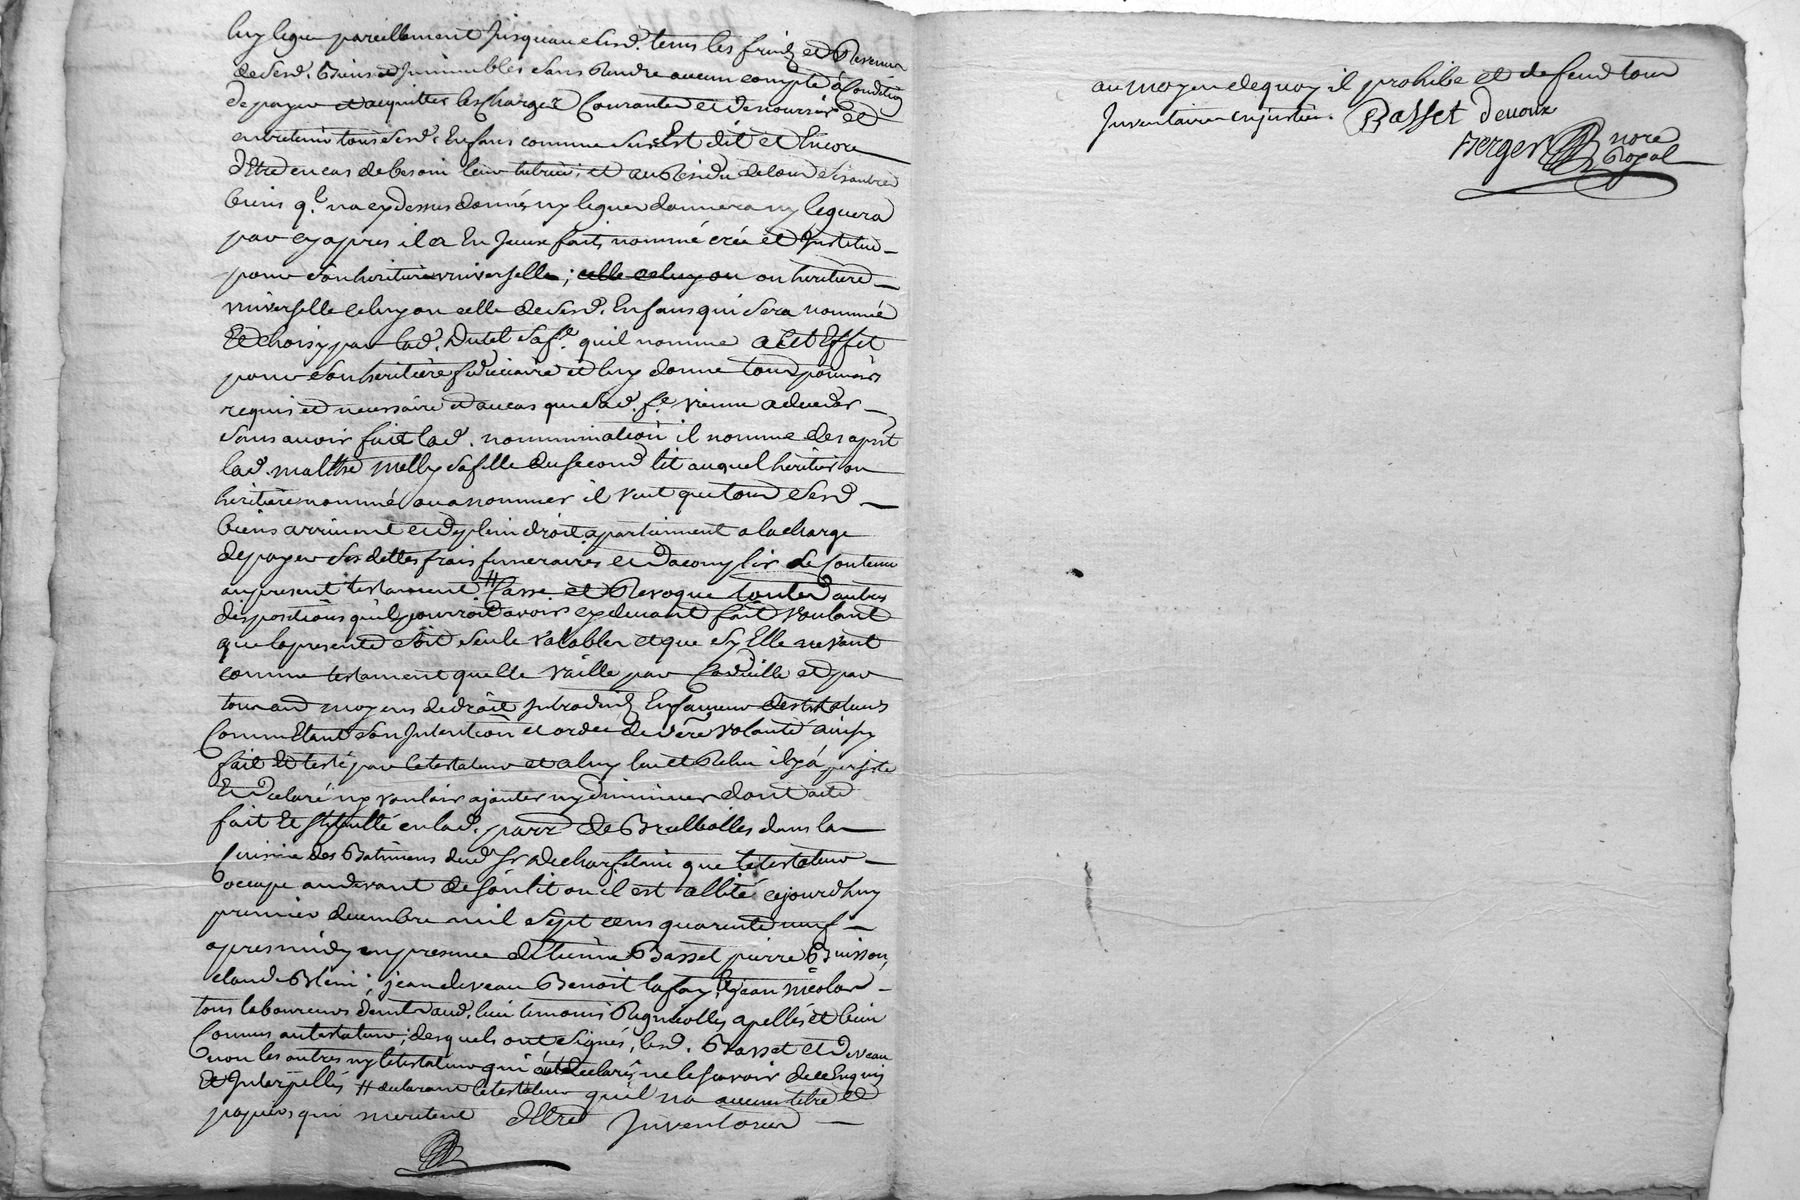 luy legue pareillement jusques au susd. tems les fruits et Revenus
de sesd. Biens et Immeubles sans Rendre aucun compte a Condition
de payer et acquitter les charges Courantes et de nourrir et
entretenir tous sesd. Enfans comme susEst dit et Encore
dEtre en cas de besoin leur tutrice; et au Residu de tous ses autres
biens q.l na cy dessus donnés ny legués donnera ny leguera
par cy apres il a En Iceux fait, nommé créé et Institué
pour son heritier universelle; celle celuy ou ou heritiere
universelle celuy ou celle de sesd. Enfans qui sera nommé
Et choisy par lad. Dutel sa fe. quil nomme a cet Effet
pour son heritiere fiduciaire et luy donne tous pouvoirs
requis et necessaire et au cas que sad. fe. vienne a deceder
sans avoir fait lad. nommination il nomme des a p.nt
lad. mathe melly sa fille du second lit auquel heritier ou
heritiere nommé ou a nommer il veut que tous sesd.
biens arrivent et de plein droit apartiennent a la charge
de payer ses dettes frais funeraires et dacomplir le Contenu
au present testament // Casse et Revoque toutes autres
dispositions quil pourroit avoir cy devant fait voulant
que la presente soit seule valable et que sy Elle ne vaut
comme testament quelle vaille par Codicille et par
tous aud moyens de droit Introduits En faveur des testateurs
Commettant son Intention et ordre de dere volonté ainsy
fait Et testé par le testateur et a luy leu et Releu il y a persisté
Et declaré ny vouloir ajouter ny diminuer dont acte
fait Et stipullé en lad. parr. de Brullioles dans la
Cuisine des Batimens dud. sr que le testateur
occupe au devant de son lit ou il est allité cejourdhuy
premier decembre mil sept cens quarente neuf
apres midy en presence dEtienne Basset pierre Buisson,
claude Blein; jean deveau Benoit lafay, & jean nicolas
tous laboureurs dud. lieu temoins Requis apellés et bien
Connus au testateur; desquels ont signés, lesd. Basset et deveau
non les autres ny le testateur qui ont declarés ne le scavoir de ce Enquis
Et Interpellés // declarant le testateur quil na aucun titre et
papiers qui meritent dEtre Inventoriés
au moyen de quoy il prohibe et deffend tous
Inventaires en justice. Basset devoux
Berger nore
Royal